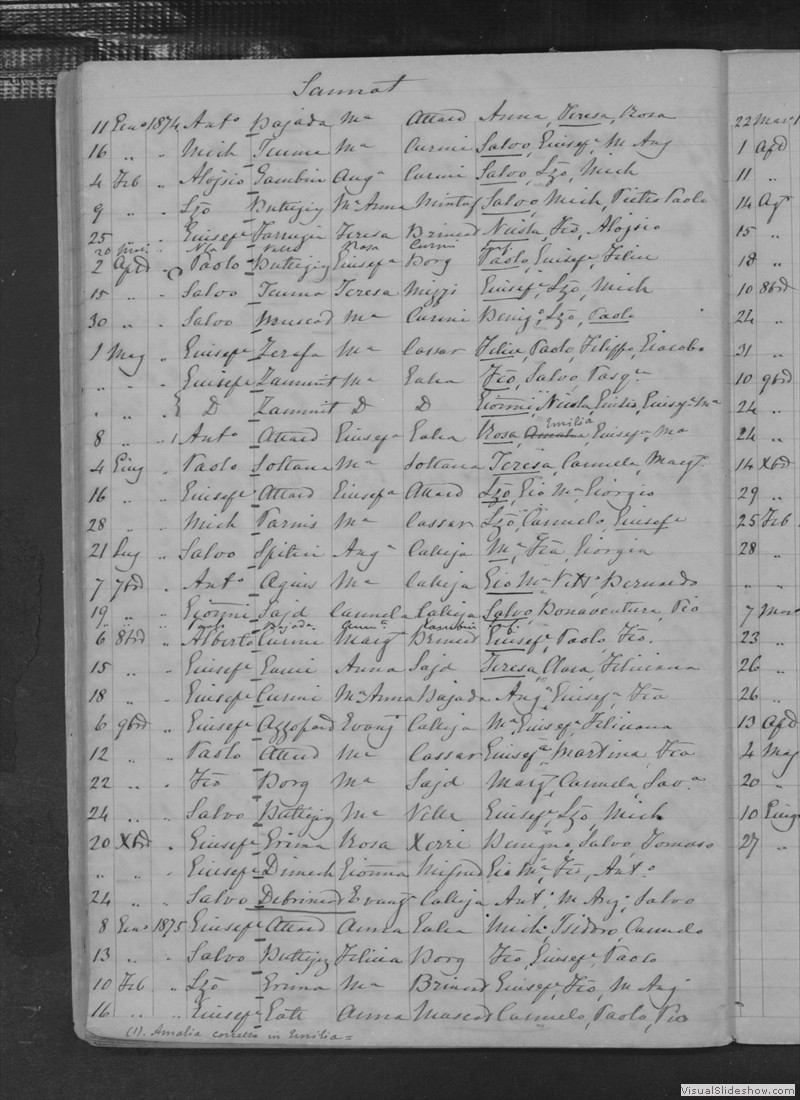 Sannat
11 Gen° 1874 Ant° Bajada Mª Attard Anna, Teresa, Rosa
16 „ „ Mich Teuma Mª Curmi Salvo, Giusefe, M Ang
4 Feb „ Alojsio Gambin Angª Curmi Salvo, Lzo, Mich
9 „ „ Lzo Buttigieg Mª Anna Mintof Salvo, Mich, Pietro Paolo
25 „ „ Giusefe Farrugia Teresa Brincat Nicola, Fco, Alojsio
Vella Rosa Curmi
2 Aple „ Paolo Buttigieg Giusefa Borg Paolo, Giusefe, Felice
15 „ „ Salvo Teuma Teresa Mizzi Giusefe, Lzo, Mich
30 „ „ Salvo Muscat Mª Curmi Benigº, Lzo, Paolo
1 Mag „ Giusefe Zerafa Mª Cassar Felice, Paolo, Filippo, Giacobo
„ „ „ Giusefe Zammit Mª Galea Fco, Salvo, Pasqª
„ „ „ D Zammit D D Giovni, Nicola, Giulio, Giusefe Mª
8 „ „ 1 Antº Attard Giusefa Galea Rosa, Emilia, Giusefa, Mª
4 Giug „ Paolo Soltana Mª Soltana Teresa, Carmela, Margª
16 „ „ Giusefe Attard Giusefa Attard Lzo, Gio Mª, Giorgio
28 „ Mich Farnis Mª Cassar Lzo, Carmelo, Giusefe
21 Lug „ Salvo Spiteri Angª Calleja Mª, Fca, Giorgia
7 7bre „ Antº Agius Mª Calleja Gio Mª, Vittº, Bernardo
19 „ „ Giovni Sajd Carmela Calleja Salvo, Bonaventura, Pio
Paolo Bajada Gambin
6 8bre „ Alberto Curmi Margª Brincat Giusefe, Paolo, Fco.
15 „ „ Giusefe Gauci Anna Sajd Teresa, Clara, Feliciana
18 „ „ Giusefe Curmi Mª Anna Bajada Angª, Giusefa, Fca
6 9bre „ Giusefe Azzopardi Evangª Calleja Mª, Giusefa, Feliciana
12 „ „ Paolo Attard Mª Cassar Giusefa, Martina, Fca
22 „ „ Fco Borg Mª Sajd Margª, Carmela, Savª
24 „ „ Salvo Buttigieg Mª Vella Giusefe, Lzo, Mich
20 Xbre „ Giusefe Grima Rosa Xerri Benigno, Salvo, Tomaso
„ „ „ Giusefe Dimech Giovna Mifsud Gio Mª, Fco, Antº
24 „ „ Salvo Debrincat Evangª Calleja Antº, M Angº, Salvo
8 Gen° 1875 Giusefe Attard Anna Galea Mich, Isidoro, Carmelo
13 „ „ Salvo Buttigieg Felicia Borg Fco, Giusefe, Paolo
10 Feb „ Lzo Grima Mª Brincat Giusefe, Fco, M Angº
16 „ „ Giusefe Gatt Anna Muscat Carmelo, Paolo, Pio
(1). Amalia corretto in Emilia =
22 Marz 1
1 Aple
11 „
14 Agº
15 „
18 „
10 8bre
24 „
31 „
10 9bre
24 „
24 „
14 Xbre
29 „
25 Feb
28 „
„ „
7 Mar
23 „
26 „
26 „
13 Aple
4 Mag
20 „
10 Giug
27 „
VisualSlideshow.com